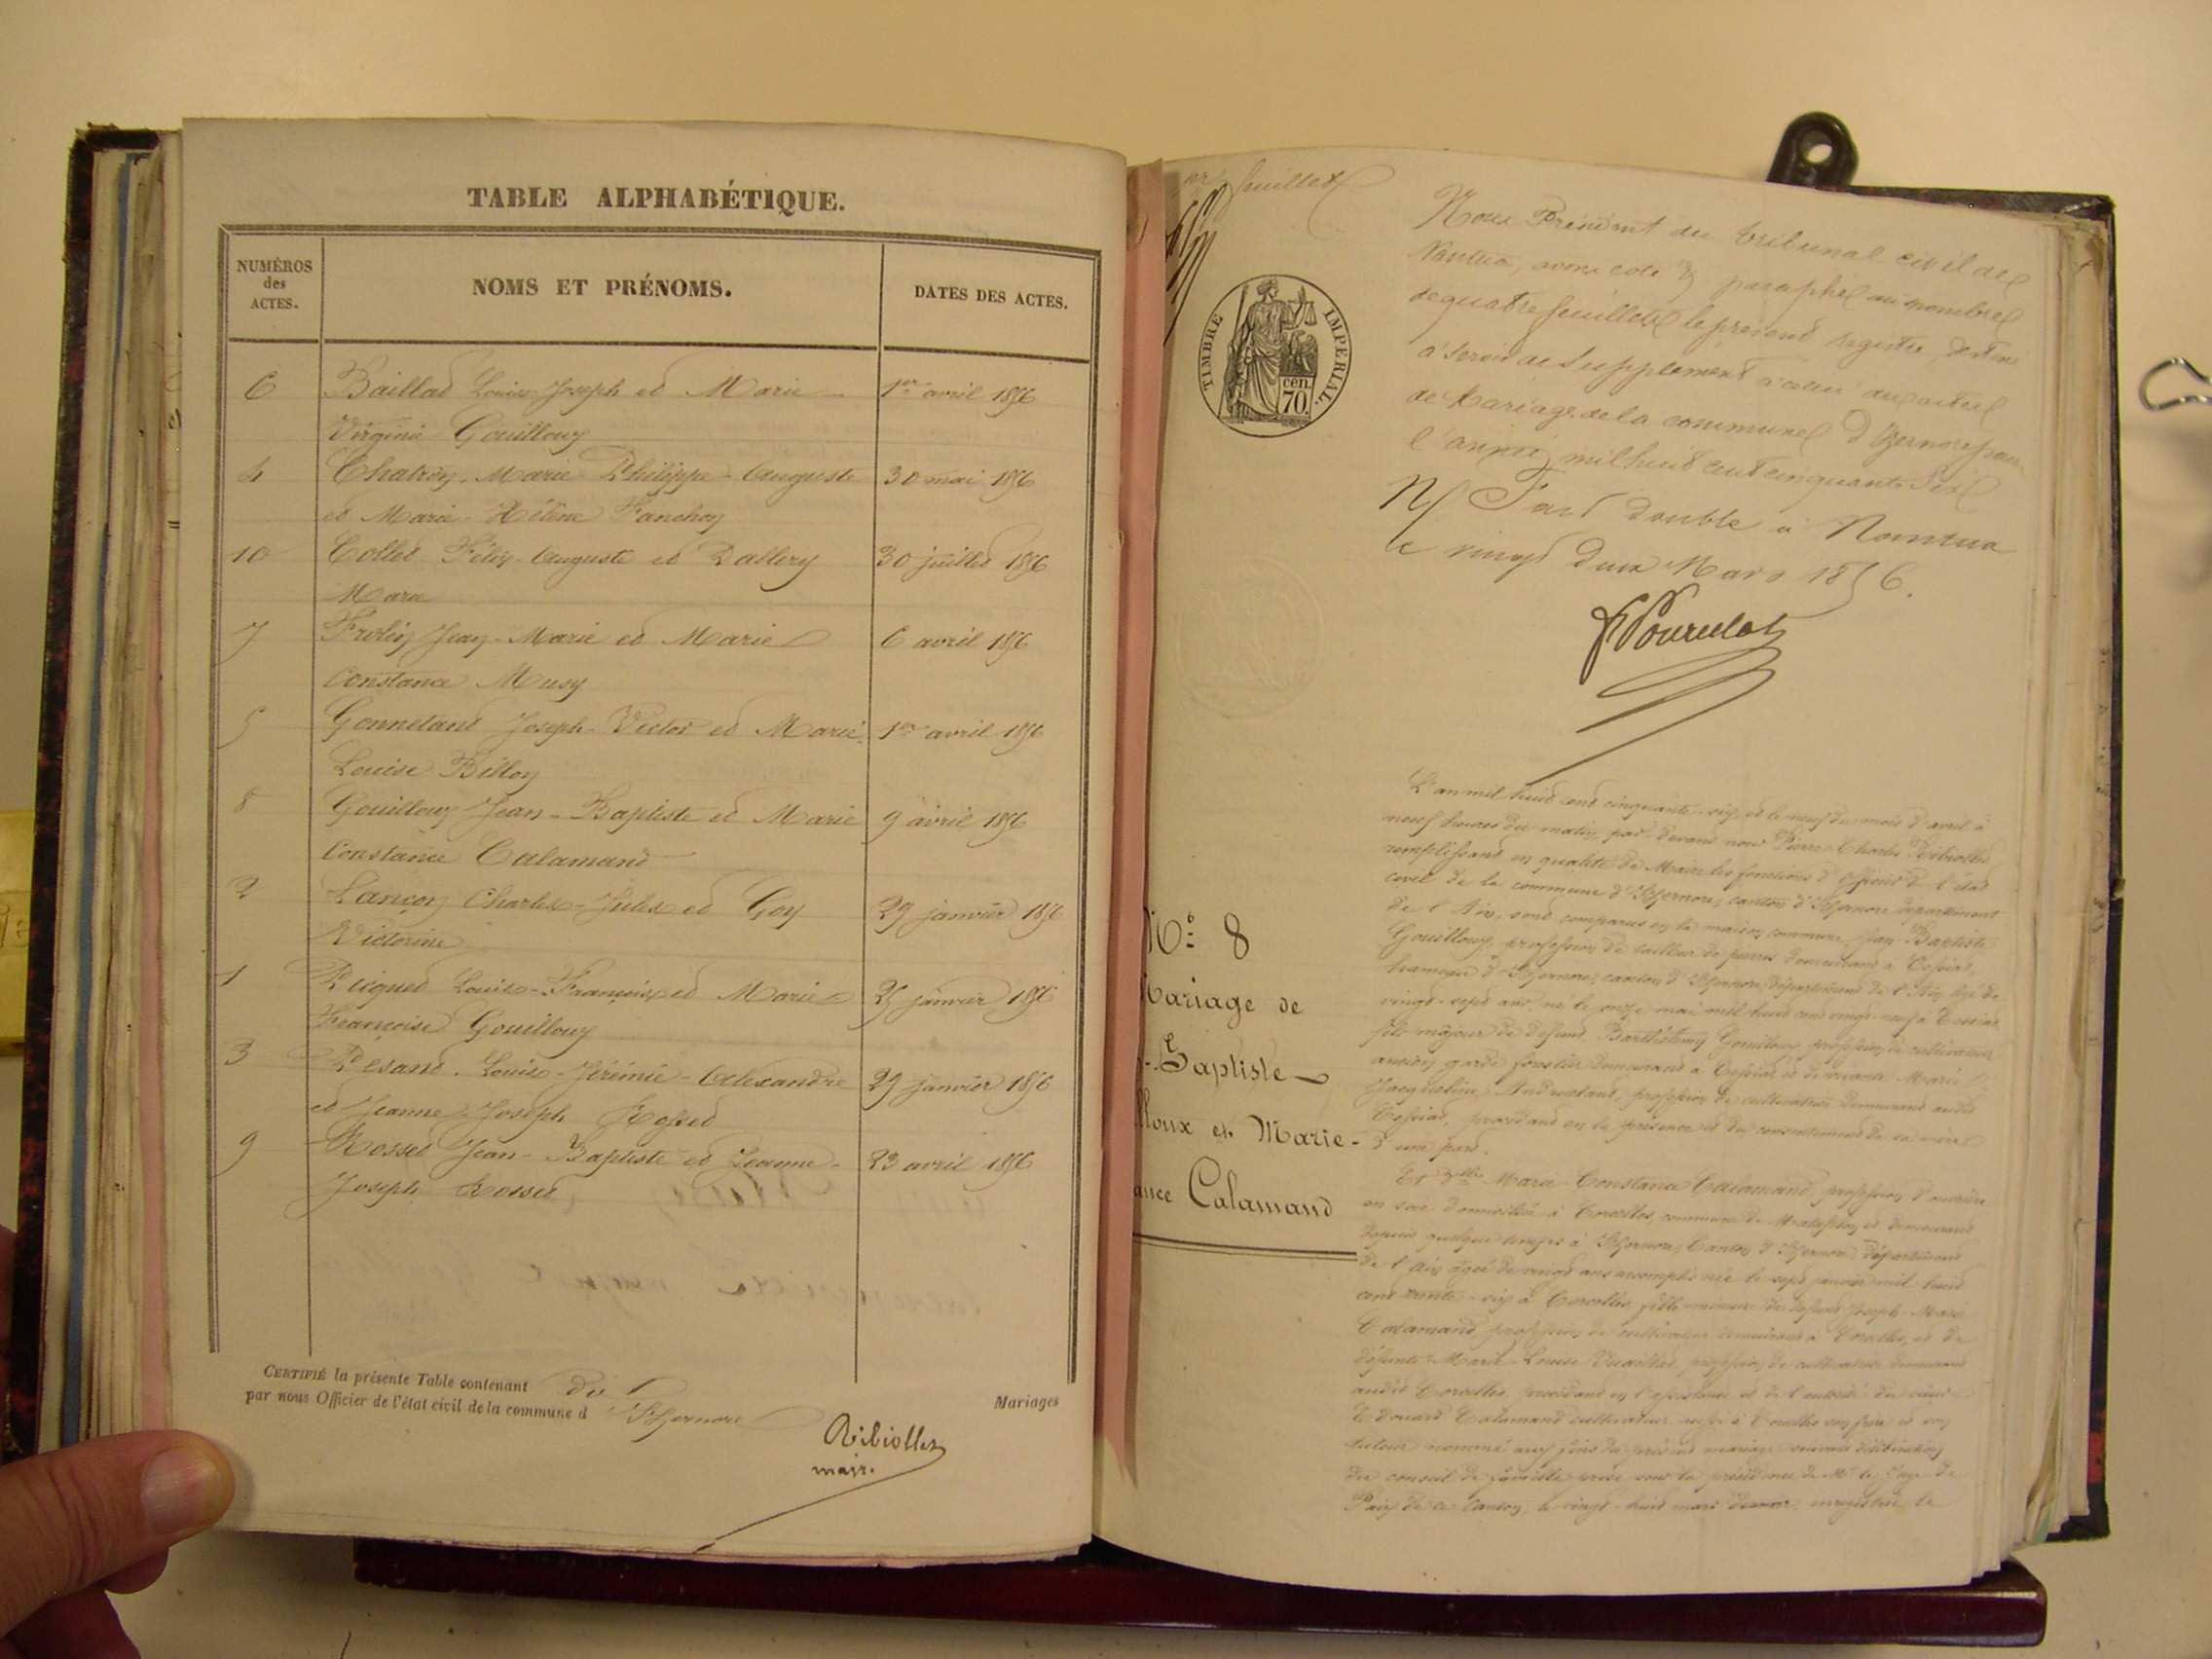 TABLE ALPHABÉTIQUE.
NUMÉROS des ACTES.
NOMS ET PRÉNOMS.
DATES DES ACTES.
6 Baillad Louis-Joseph et Marie 1er avril 1856
Virginie Gouilloux
4 Chatron Marie Philippe-Auguste 30 mai 1856
et Marie-Hélène Fanchon
10 Collet Félix-Auguste et Dallery 30 juillet 1856
Marie
7 Jean-Marie et Marie 6 avril 1856
Constance Musy
5 Gonnetand Joseph-Victor et Marie 1er avril 1856
Louise Billon
8 Gouilloux Jean-Baptiste et Marie 9 avril 1856
Constance Calamand
2 Lançon Charles-Jules et Goy 29 janvier 1856
Victorine
1 Louis-François et Marie 25 janvier 1856
Françoise Gouilloux
3 Louis-Jérémie-Alexandre 29 janvier 1856
et Jeanne-Joseph Rosset
9 Rosset Jean-Baptiste et Jeanne- 23 avril 1856
Joseph Rosset
CERTIFIÉ la présente Table contenant dix Mariages
par nous Officier de l'état civil de la commune d'Izernore
Ribiollet
maire.
feuillet
TIMBRE IMPÉRIAL.
70 cen.
Nous Président du tribunal civil de
Nantua, avons coté & paraphé au nombre
de quatre feuillets le présent registre, destiné
à servir de supplément à celui des actes
de Mariage de la commune d'Izernore pour
l'année mil huit cent cinquante six
Fait double à Nantua
le vingt deux Mars 1856.
L'an mil huit cent cinquante-six, et le neuf du mois d'avril à
neuf heures du matin, par-devant nous Pierre-Charles Ribiollet
remplissant en qualité de Maire les fonctions d'officier de l'état
civil de la commune d'Izernore, canton d'Izernore département
de l'Ain, sont comparus en la maison commune, Jean-Baptiste
Gouilloux, profession de tailleur de pierres demeurant à Tessiat,
hameau d'Izernore, canton d'Izernore, département de l'Ain, âgé de
vingt-sept ans, né le onze mai mil huit cent vingt-neuf à Tessiat,
fils majeur de défunt Barthélemy Gouilloux, profession de cultivateur
ancien garde forestier demeurant à Tessiat et de vivante Marie
Jacqueline, profession de cultivatrice demeurant audit
Tessiat, procédant en la présence et du consentement de sa mère
d'une part.
Et Dlle Marie-Constance Calamand, profession d'ouvrière
en soie domiciliée à commune de et demeurant
depuis quelque temps à Izernore, Canton d'Izernore, département
de l'Ain, âgée de vingt ans accomplis née le sept janvier mil huit
cent trente-six à fille mineure de défunt Joseph-Marie
Calamand, profession de cultivateur demeurant à et de
défunte Marie-Louise profession de cultivatrice demeurant
audit procédant en l'assistance et de l'autorité du sieur
Edouard Calamand cultivateur aussi à son frère et son
tuteur nommé aux fins du présent mariage suivant délibération
du conseil de famille prise sous la présidence de Mr le Juge de
Paix de ce Canton, le vingt-huit mars dernier, enregistrée le
No 8
Mariage de
-Baptiste
lloux et Marie-
ance Calamand